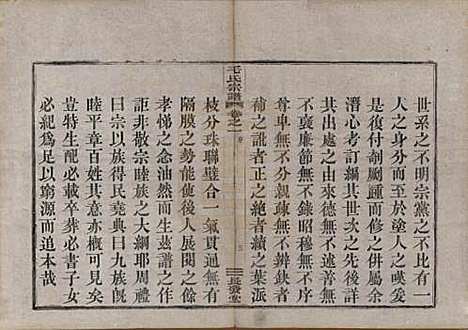 世系之不明宗黨之不比有一
人之身分而至於塗人之嘆爰
是復付剞劂踵而修之併屬余
潛心考訂編其世次之條緒誌
其出處之由來德無不善善無
不褒廉節無不錄昭穆無不序
尊卑無不分親疎無不辨缺者
補之訛者正之絶者續之葉派
毛氏宗譜 卷之一 序
長發堂
枝分珠聯璧合一氣貫通無有
隔膜之勢能使後人展閱之餘
孝悌之念油然而生茲譜之作
詎非敬宗睦族之大綱耶周禮
曰宗以族得民堯典曰九族旣
睦平章百姓其意亦概可見矣
豈特生配必載卒葬必書子女
必紀爲足以窮源而追本哉